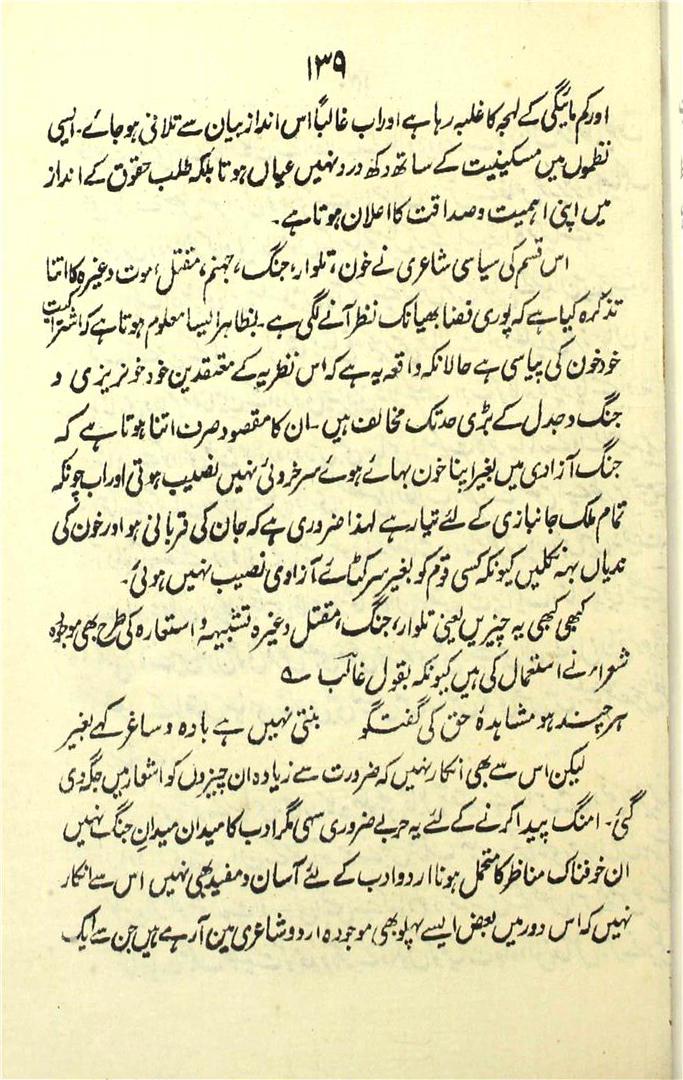 ۱۳۹
اور کم مائیگی کے لہجہ کا غلبہ رہا ہے اور اب غالباً اس انداز بیان سے تلافی ہو جائے۔ ایسی
نظموں میں مسکینیت کے ساتھ دکھ درد نہیں عیاں ہوتا بلکہ طلب حقوق کے انداز
میں اپنی اہمیت و صداقت کا اعلان ہوتا ہے۔
اس قسم کی سیاسی شاعری نے خون، تلوار، جنگ، جہنم، مقتل، موت وغیرہ کا اتنا
تذکرہ کیا ہے کہ پوری فضا بھیانک نظر آنے لگی ہے۔ بظاہر ایسا معلوم ہوتا ہے کہ اشتراکیت
خود خون کی پیاسی ہے حالانکہ واقعہ یہ ہے کہ اس نظریہ کے معتقدین خود خونریزی و
جنگ و جدل کے بڑی حد تک مخالف ہیں۔ ان کا مقصود صرف اتنا ہوتا ہے کہ
جنگ آزادی میں بغیر اپنا خون بہائے ہوئے سرخروئی نہیں نصیب ہوتی اور اب چونکہ
تمام ملک جانبازی کے لئے تیار ہے لہذا ضروری ہے کہ جان کی قربانی ہو اور خون کی
ندیاں بہہ نکلیں کیونکہ کسی قوم کو بغیر سر کٹائے آزادی نصیب نہیں ہوئی۔
کبھی کبھی یہ چیزیں یعنی تلوار، جنگ، مقتل وغیرہ تشبیہہ و استعارہ کی طرح بھی موجودہ
شعراء نے استعمال کی ہیں کیونکہ بقول غالب ؎
ہر چند ہو مشاہدۂ حق کی گفتگو بنتی نہیں ہے بادہ و ساغر کہے بغیر
لیکن اس سے بھی انکار نہیں کہ ضرورت سے زیادہ ان چیزوں کو اشعار میں جگہ دی
گئی۔ امنگ پیدا کرنے کے لئے یہ حربے ضروری سہی مگر ادب کا میدان میدانِ جنگ نہیں
ان خوفناک مناظر کا متحمل ہونا اردو ادب کے لئے آسان و مفید بھی نہیں اس سے انکار
نہیں کہ اس دور میں بعض ایسے پہلو بھی موجودہ اردو شاعری مین آرہے ہیں جن سے ایک